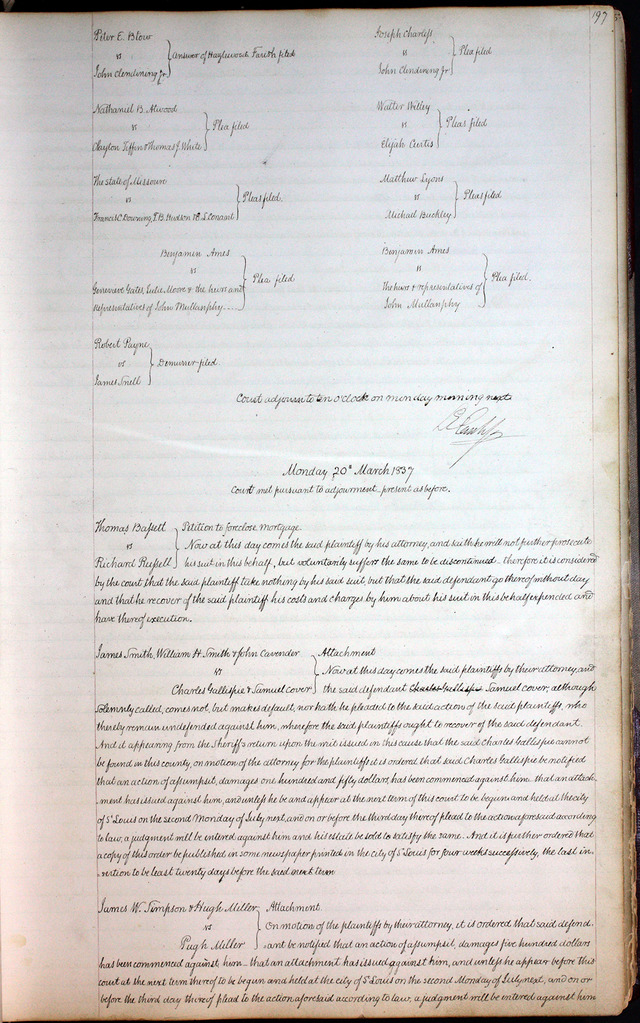 197
Peter E. Blow
vs
John Clendining Jr.
Answer of Haylewood Farish filed
Joseph Charless
vs
John Clendining Jr.
Plea filed
Nathaniel B. Atwood
vs
Clayton Tiffin & Thomas J. White
Plea filed
Walter Willey
vs
Elijah Curtis
Pleas filed
The State of Missouri
vs
Francis C. Downing, T. B. Hudson & E. S. Conant
Pleas filed.
Matthew Lyons
vs
Michael Buckley
Pleas filed
Benjamin Ames
vs
Genevieve Gates, Moore & the heirs and
representatives of John Mullanphy
Plea filed
Benjamin Ames
vs
The heirs & representatives of
John Mullanphy
Plea filed.
Robert Payne
vs
James Snell
Demurrer filed
Court adjourn to ten o'clock on monday morning next
Monday 20th March 1837
Court met pursuant to adjournment present as before.
Thomas Bassell
vs
Richard Russell
Petition to foreclose mortgage
Now at this day comes the said plaintiff by his attorney, and saith he will not further prosecute
his suit in this behalf, but voluntarily suffers the same to be discontinued therefore it is considered
by the court that the said plaintiff take nothing by his said suit, but that the said defendant go thereof without day
and that he recover of the said plaintiff his costs and charges by him about his suit in this behalf expended and
have thereof execution.
James Smith, William H. Smith & John Cavender
vs
Charles Gallispie & Samuel Cover
Attachment
Now at this day comes the said plaintiffs by their attorney, and
the said defendant Charles Gallispie Samuel Cover, although
solemnly called, comes not, but makes default, nor hath he pleaded to the said action of the said plaintiffs, who
thereby remain undefended against him, wherefore the said plaintiffs ought to recover of the said defendant.
And it appearing from the Sheriff's return upon the writ issued in this cause that the said Charles Gallispie cannot
be found in this county, on motion of the attorney for the plaintiffs it is ordered that said Charles Gallispie be notified
that an action of assumpsit, damages one hundred and fifty dollars, has been commenced against him that an attach-
ment has issued against him, and unless he be and appear at the next term of this court to be begun and held at the city
of St Louis on the second Monday of July next, and on or before the third day thereof plead to the action aforesaid according
to law, a judgment will be entered against him and his estate be sold to satisfy the same. And it is further ordered that
a copy of this order be published in some newspaper printed in the city of St Louis for four weeks successively, the last in-
sertion to be least twenty days before the said next term
James W. Simpson & Hugh Miller
vs
Pugh Miller
Attachment
On motion of the plaintiffs by their attorney, it is ordered that said defend-
ant be notified that an action of assumpsit, damages five hundred dollars
has been commenced against him that an attachment has issued against him, and unless he appear before this
court at the next term thereof to be begun and held at the city of St Louis on the second Monday of July next, and on or
before the third day thereof plead to the action aforesaid according to law, a judgment will be entered against him